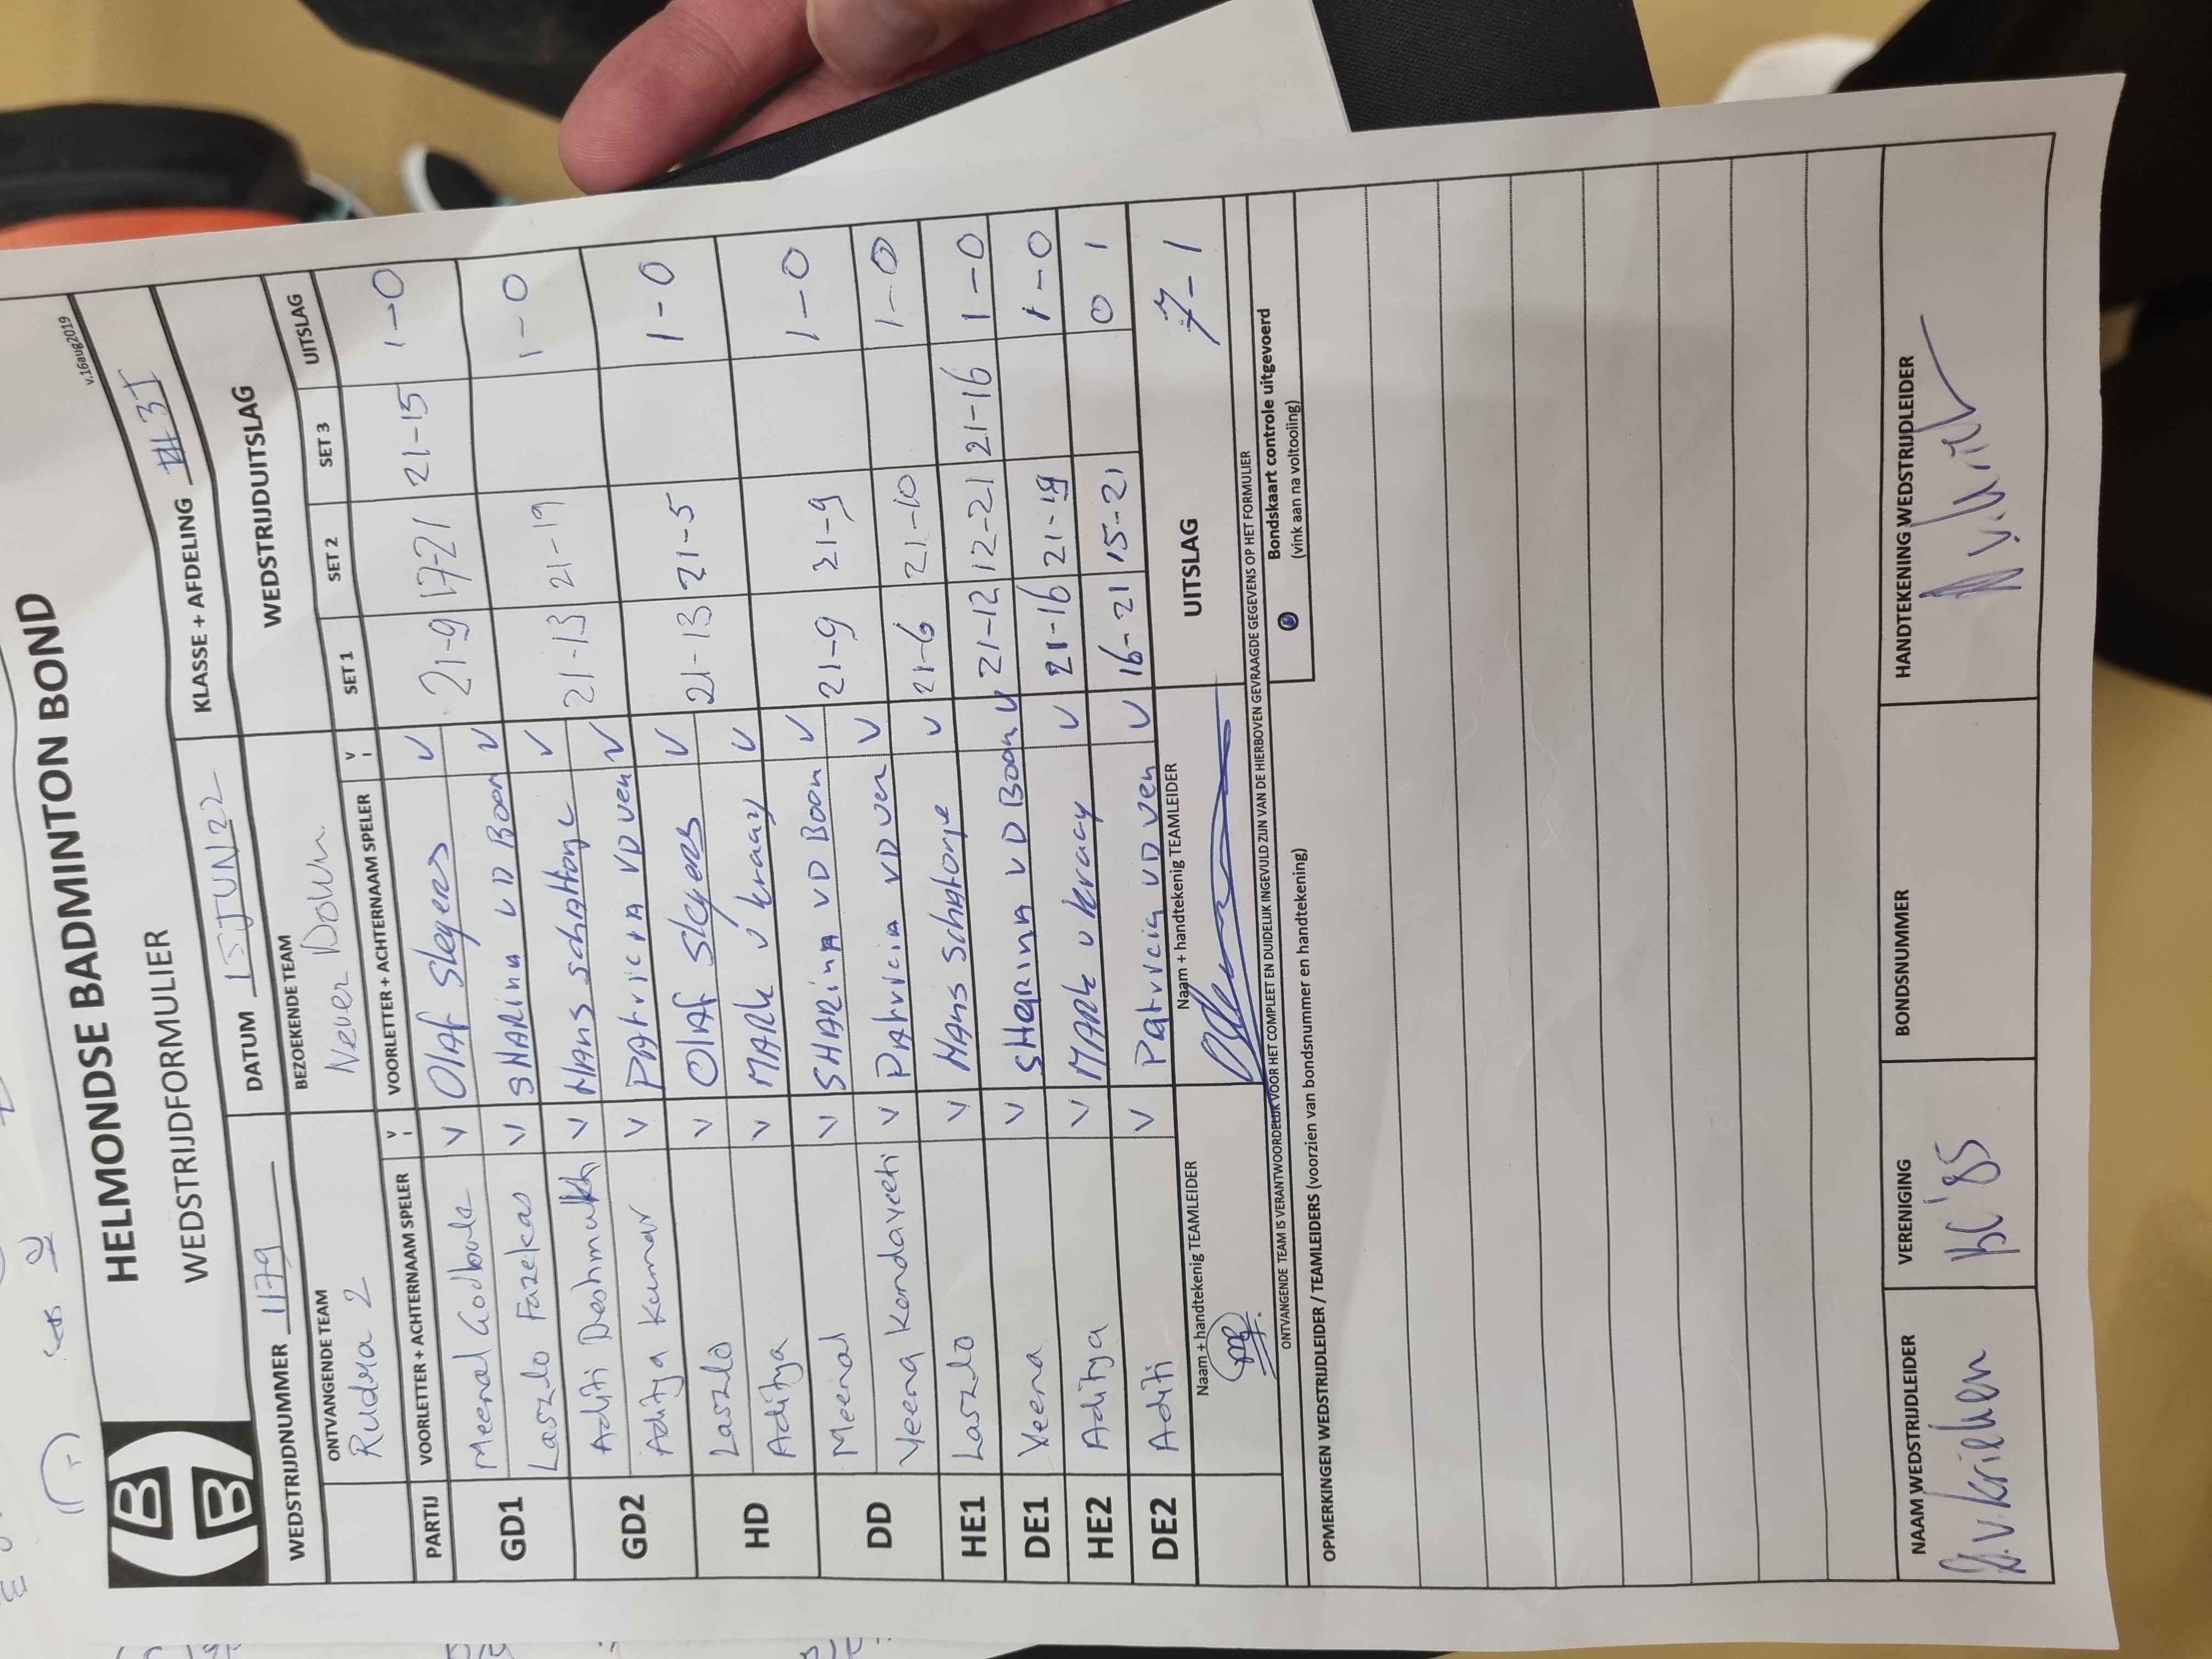 HELMONDSE BADMINTON BOND
v.16aug2019
WEDSTRIJDFORMULIER
WEDSTRIJDNUMMER 1179 DATUM 15JUN22 KLASSE + AFDELING
ONTVANGENDE TEAM BEZOEKENDE TEAM WEDSTRIJDUITSLAG
Rudra 2 Never Down
PARTIJ VOORLETTER + ACHTERNAAM SPELER V VOORLETTER + ACHTERNAAM SPELER V SET 1 SET 2 SET 3 UITSLAG
GD1 Meenal Godbole V Olaf Sleyers V 21-9 17-21 21-15 1-0
Laszlo Fazekas V SHARINA VD Boom V
GD2 Aditi Deshmukh V Hans schattorje V 21-13 21-19 1-0
Aditya Kumar V PAtricia VD Ven V
HD Laszlo V Olaf Sleyers V 21-13 21-5 1-0
Aditya V MARk v kraay V
DD Meenal V SHARINA VD Boom V 21-9 21-9 1-0
Veena Kondaveeti V PAtricia VD Ven V 21-6 21-10 1-0
HE1 Laszlo V Hans schatorje V 21-12 12-21 21-16 1-0
DE1 Veena V SHARINA VD Boom V 21-16 21-19 1-0
HE2 Aditya V MARk v kraay V 16-21 15-21 0 1
DE2 Aditi V Patricia VD Ven V
Naam + handtekenig TEAMLEIDER Naam + handtekenig TEAMLEIDER UITSLAG 7-1
ONTVANGENDE TEAM IS VERANTWOORDELIJK VOOR HET COMPLEET EN DUIDELIJK INGEVULD ZIJN VAN DE HIERBOVEN GEVRAAGDE GEGEVENS OP HET FORMULIER
OPMERKINGEN WEDSTRIJDLEIDER / TEAMLEIDERS (voorzien van bondsnummer en handtekening)
Bondskaart controle uitgevoerd
(vink aan na voltooiing)
NAAM WEDSTRIJDLEIDER VERENIGING BONDSNUMMER HANDTEKENING WEDSTRIJDLEIDER
BC '85